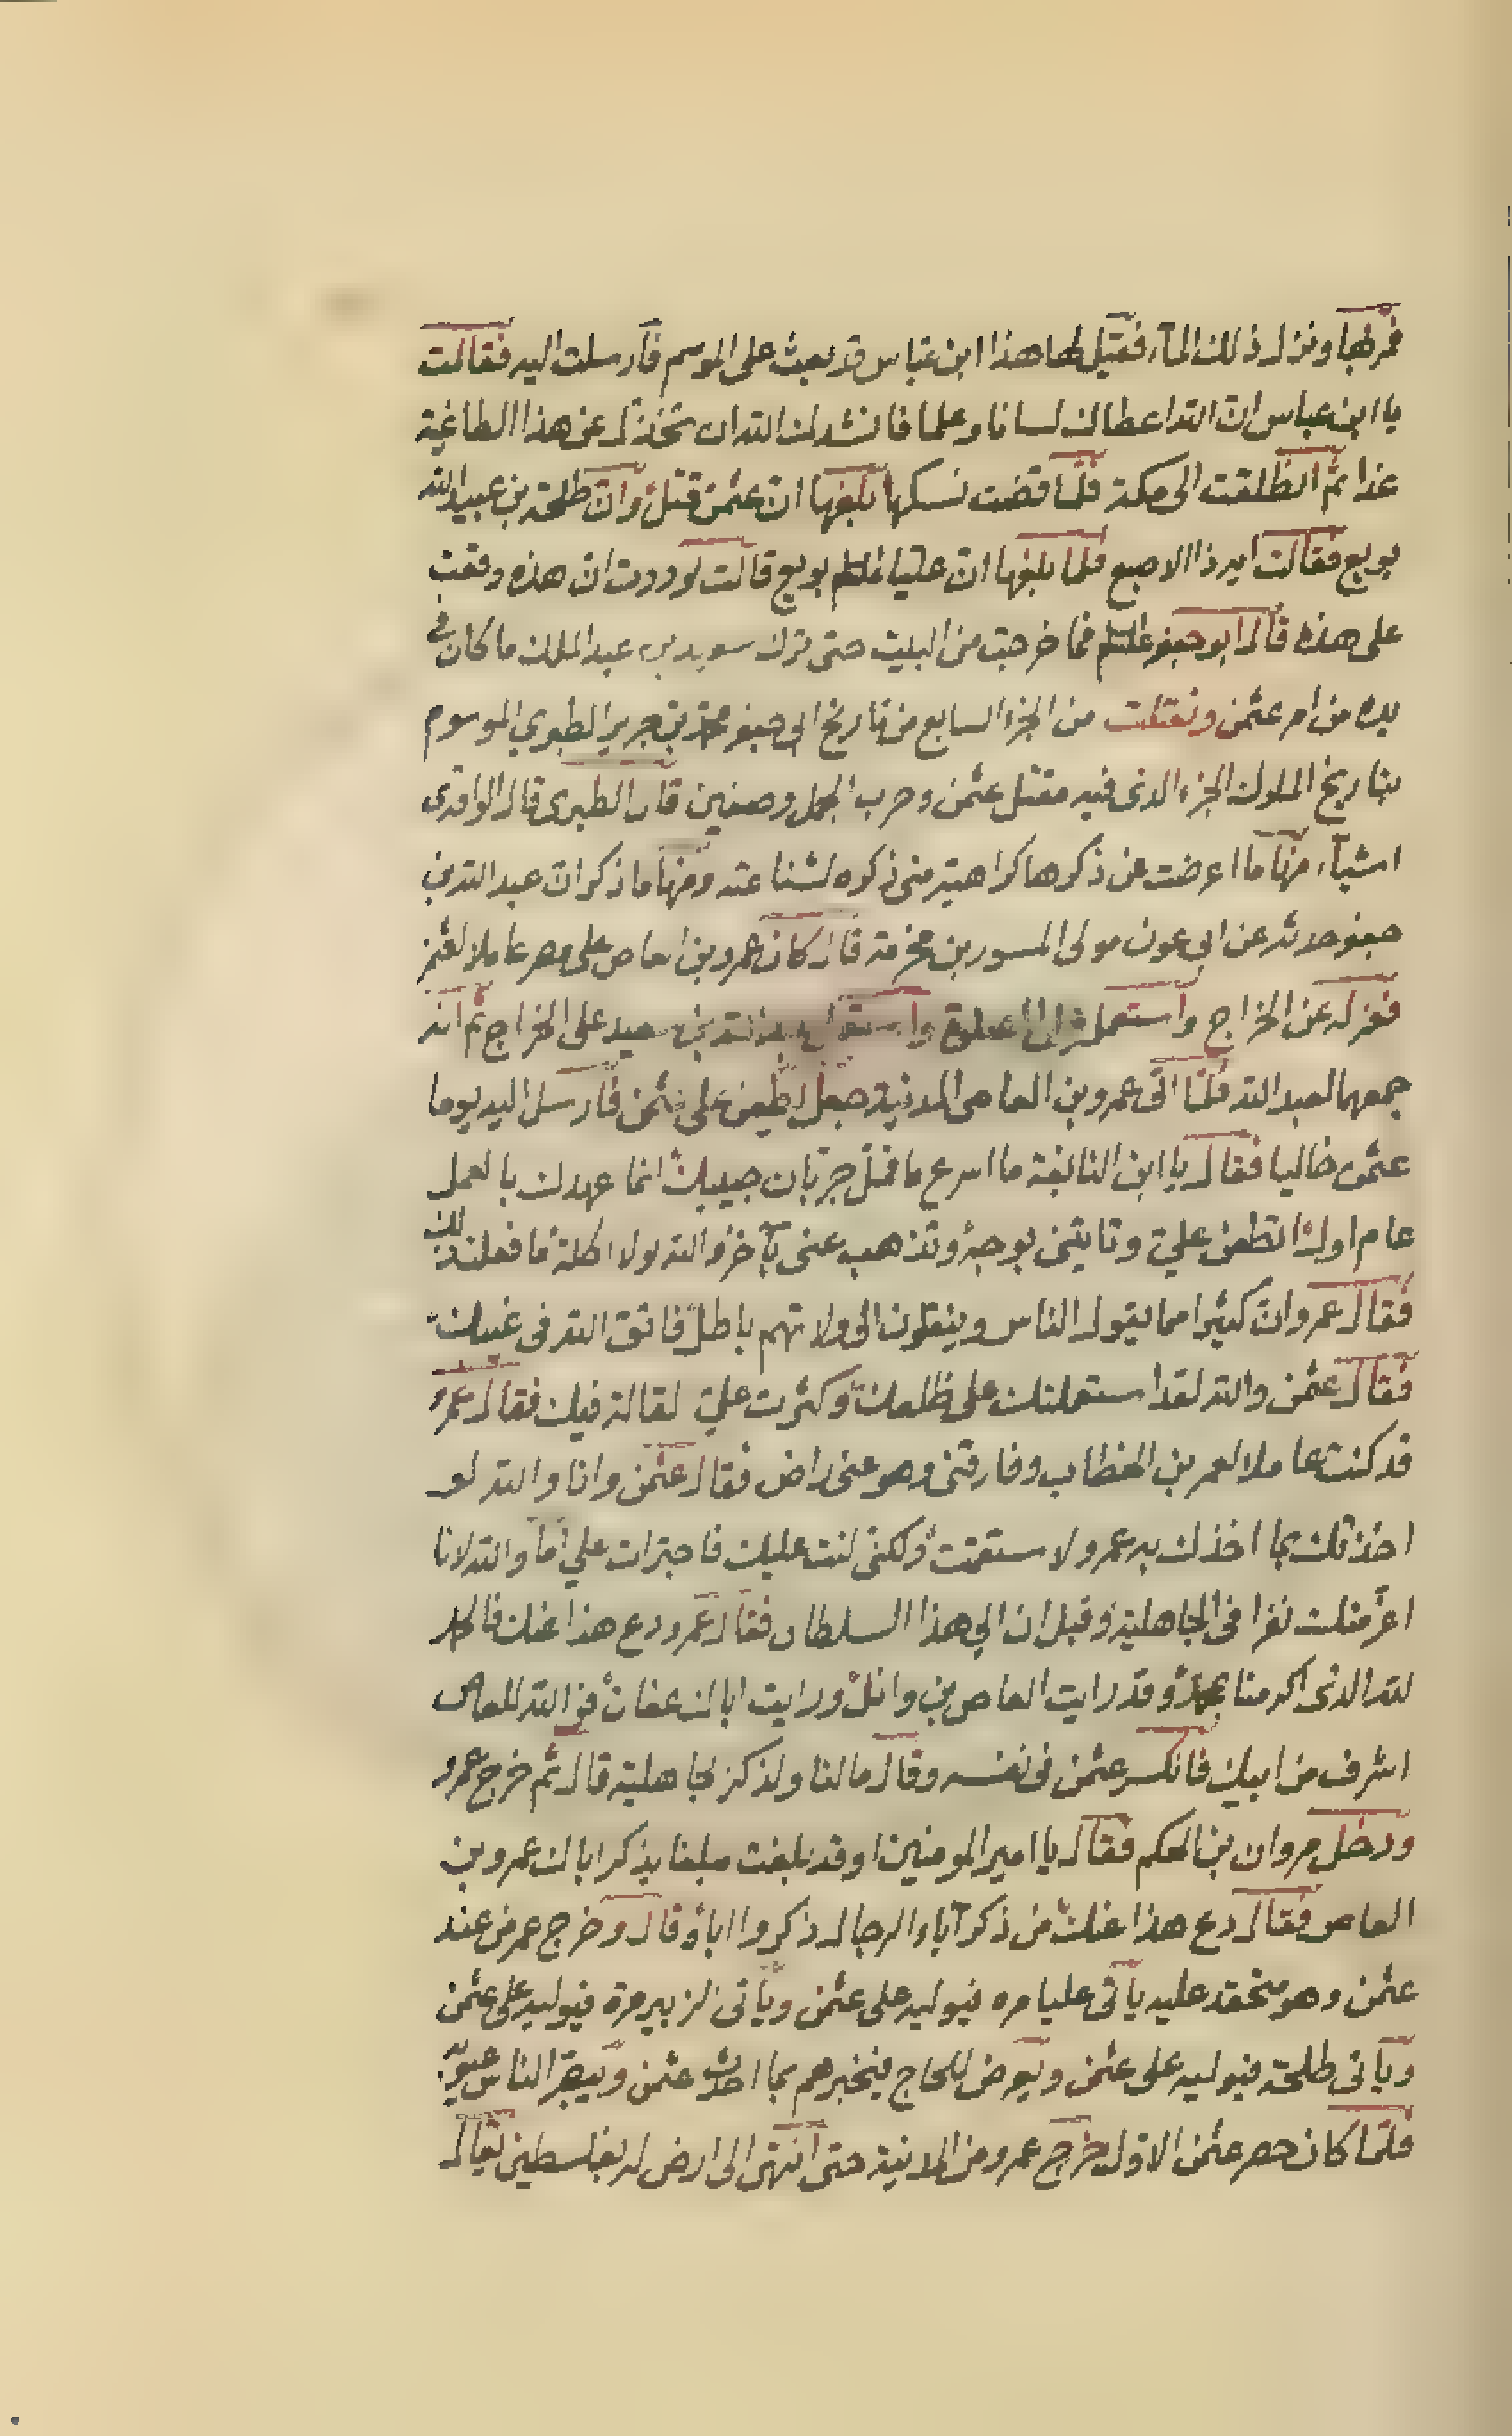 فمر بها ونزل ذلك الماء فقيل لها هذا ابن عباس قد بعث على الموسم فارسلت اليه فقالت
يا ابن عباس ان الله اعطاك لسانا وعلما فانشدك الله ان تخذل عن هذا الطاغية
غدا ثم انطلقت الى مكة فلما قضت نسكها بلغها ان عثمن قتل وان طلحة بن عبيد الله
بويع فقالت ايه ذا الاصبع فلما بلغها ان عليا بويع قالت لوددت ان هذه وقعت
على هذه قال ابو جعفر فما خرجت من البيت حتى ترك سويد بن عبد الملك ما كان في
يده من امر عثمن ونقلت من الجزء السابع من تاريخ ابى جعفر محمد بن جرير الطبري الموسوم
بتاريخ الملوك الجزء الذى فيه مقتل عثمن وحرب الجمل وصفين قال الطبرى قال الواقدى
اشياء منها ما اعرضت عن ذكرها كراهية منى ذكره لشناعته ومنها ما ذكر ان عبد الله بن
جعفر حدثه عن ابى عون مولى المسور بن مخرمة قال كان عمرو بن العاص على مصر عاملا لعثمن
فعزله عن الخراج واستعمله على الصلوة واستعمل عبد الله بن سعيد على الخراج ثم انه
جمعهما لعبد الله فلما اتى عمرو بن العاص المدينة جعل يطعن على عثمن فارسل اليه يوما
عثمن خاليا فقال يا ابن النابغة ما اسرع ما قمل جربان جيبك انما عهدك بالعمل
عام اول اتطعن علي وتايتنى بوجه وتذهب عنى بآخر والله لولا اكلة ما فعلت ذلك
فقال عمرو ان كثيرا مما يقول الناس وينقلون الى ولاتهم باطل فاتق الله فى عيبك
فقال عثمن والله لقد استعملتك على ظلعك وكثرت علي لقالة فيك فقال عمرو
قد كنت عاملا لعمر بن الخطاب وفارقنى وهو عنى راض فقال عثمن وانا والله لو
اخذتك بما اخذك به عمر ولاستقمت ولكنى لنت عليك فاجترات علي اما والله لانا
اعز منك نفرا فى الجاهلية وقبل ان الي هذا السلطان فقال عمرو دع هذا عنك فالحمد
لله الذى اكرمنا بمحمد وقد رايت العاص بن وائل ورايت اباك عفان فو الله للعاص
اشرف من ابيك فانكسر عثمن فى نفسه وقال مالنا ولذكر لجاهلية قال ثم خرج عمرو
ودخل مروان بن الحكم فقال يا امير المومنين او قد بلغت مبلغا يذكر اباك عمرو بن
العاص فقال دع هذا عنك من ذكر آباء الرجال ذكروا اباه قال وخرج عمر من عند
عثمن وهو محتقد عليه ياتى عليا مره فيوليه على عثمن وياتى الزبير مرة فيوليه على عثمن
وياتى طلحة فيوليه على عثمن ويعرض للحاج فيخبرهم بما احدث عثمن الناس
فلما كان حصر عثمن الاول خرج عمرو من المدينة حتى انتهى الى ارض له بفلسطين يقال